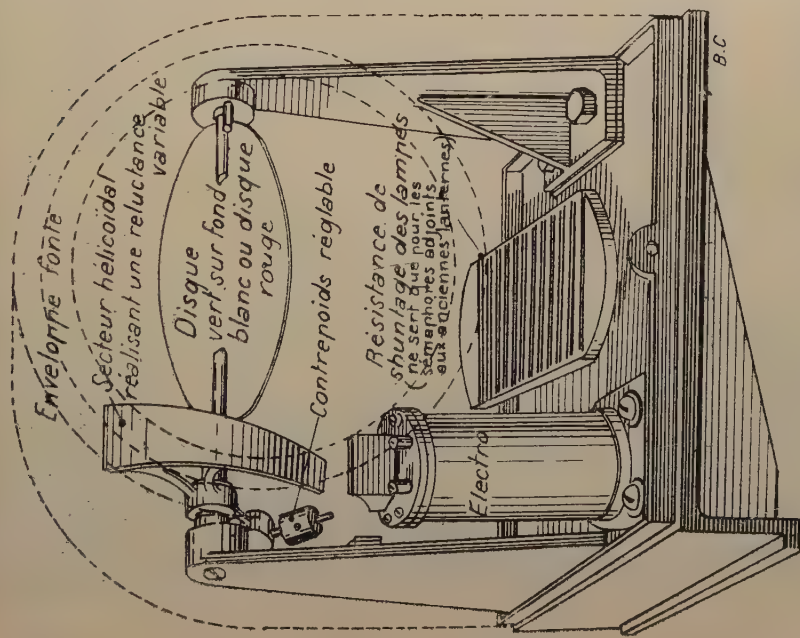 Enveloppe fonte
Secteur hélicoïdal
réalisant une reluctance
variable
Disque
vert sur fond
blanc ou disque
rouge
Contrepoids réglable
Résistance de
shuntage des lampes
(ne sert que pour les
sémaphores adjoints
aux anciennes lanternes)
Electro
B.C